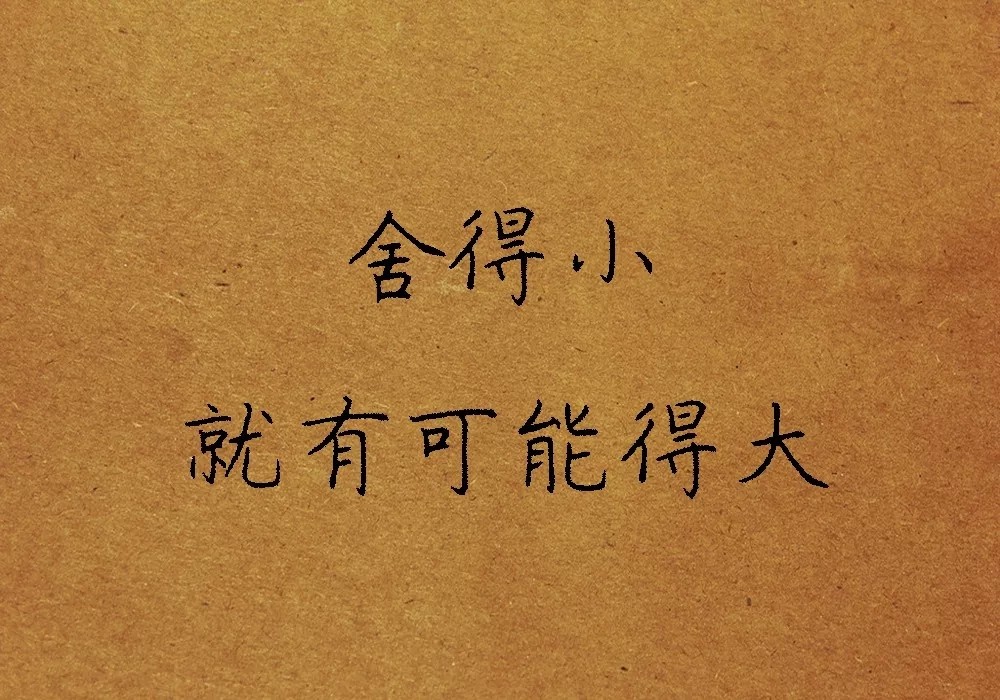 舍得小
就有可能得大